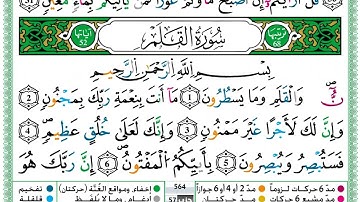 قُلْ أَرَءَيْتُمْ إِنْ أَصْبَحَ مَآؤُكُمْ غَوْرًا فَمَن يَأْتِيكُم بِمَآءٍ مَّعِينٍۭ
ترتيبها 68 سُورَةُ القَلَمِ آياتها 52
بِسْمِ اللَّهِ الرَّحْمَٰنِ الرَّحِيمِ
نٓ وَالْقَلَمِ وَمَا يَسْطُرُونَ 1 مَآ أَنتَ بِنِعْمَةِ رَبِّكَ بِمَجْنُونٍ 2
وَإِنَّ لَكَ لَأَجْرًا غَيْرَ مَمْنُونٍ 3 وَإِنَّكَ لَعَلَىٰ خُلُقٍ عَظِيمٍ 4
فَسَتُبْصِرُ وَيُبْصِرُونَ 5 بِأَييِّكُمُ الْمَفْتُونُ 6 إِنَّ رَبَّكَ هُوَ
مدّ 6 حركات لزوماً مدّ 2 أو 4 أو 6 جوازاً 564 إخفاء، ومواقع الغُنَّة (حركتان) تفخيم
مدّ مشبع 6 حركات مدّ حركتان 57 إدغام، وما لا يُلفَظ قلقلة